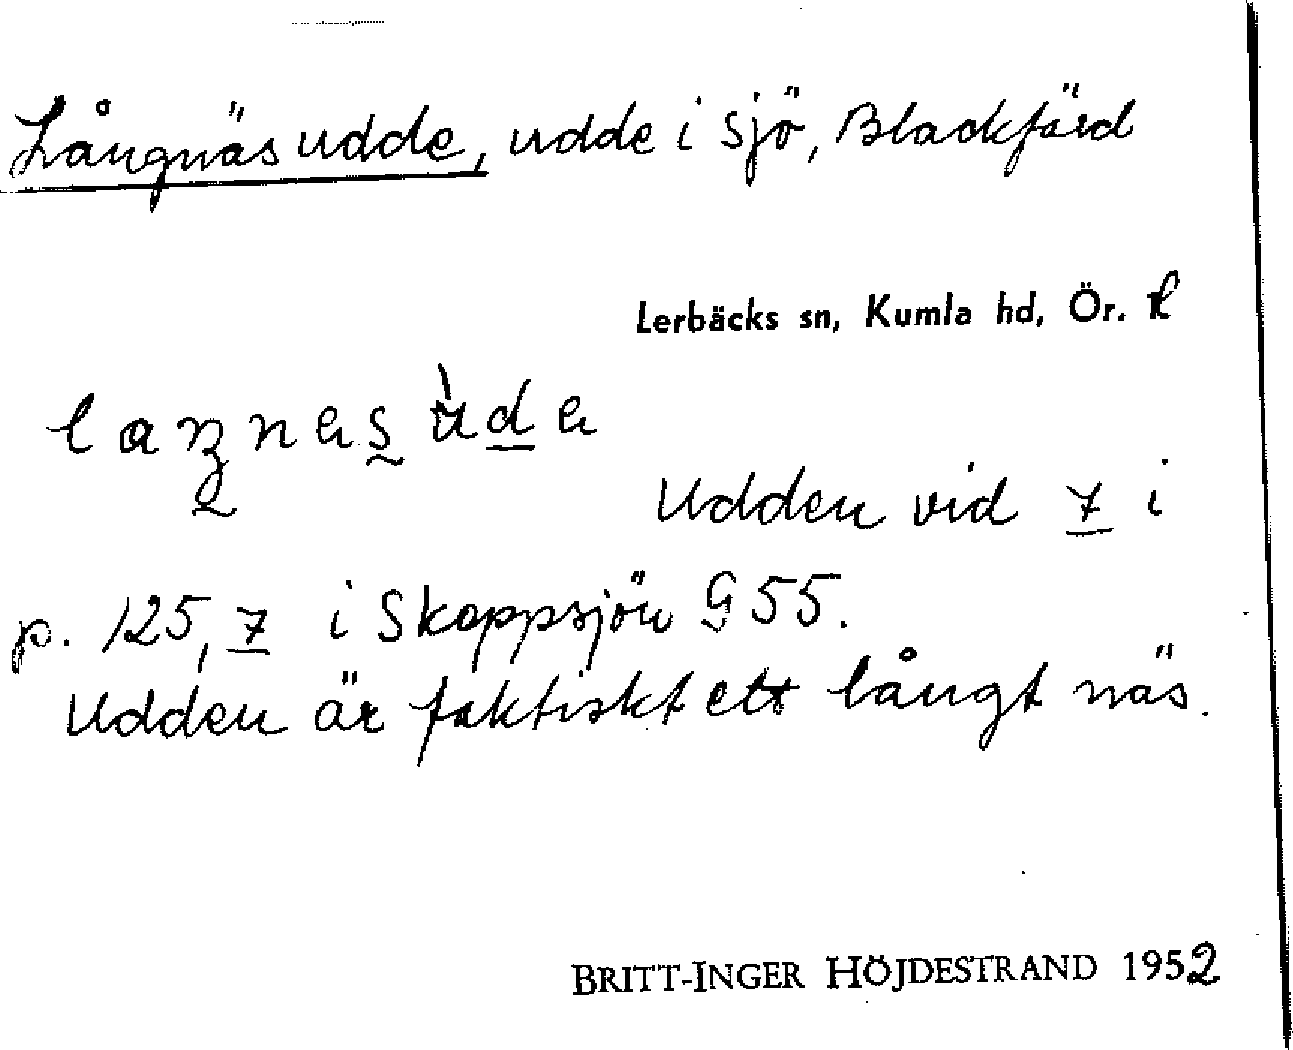 Långnäsudde, udde i sjö, Blackfärd
Lerbäcks sn, Kumla hd, Ör. l
Udden vid 7 i
p. 125, 7 i Skoppsjön G 55.
Udden är faktiskt ett långt näs.
BRITT-INGER HÖJDESTRAND 1952